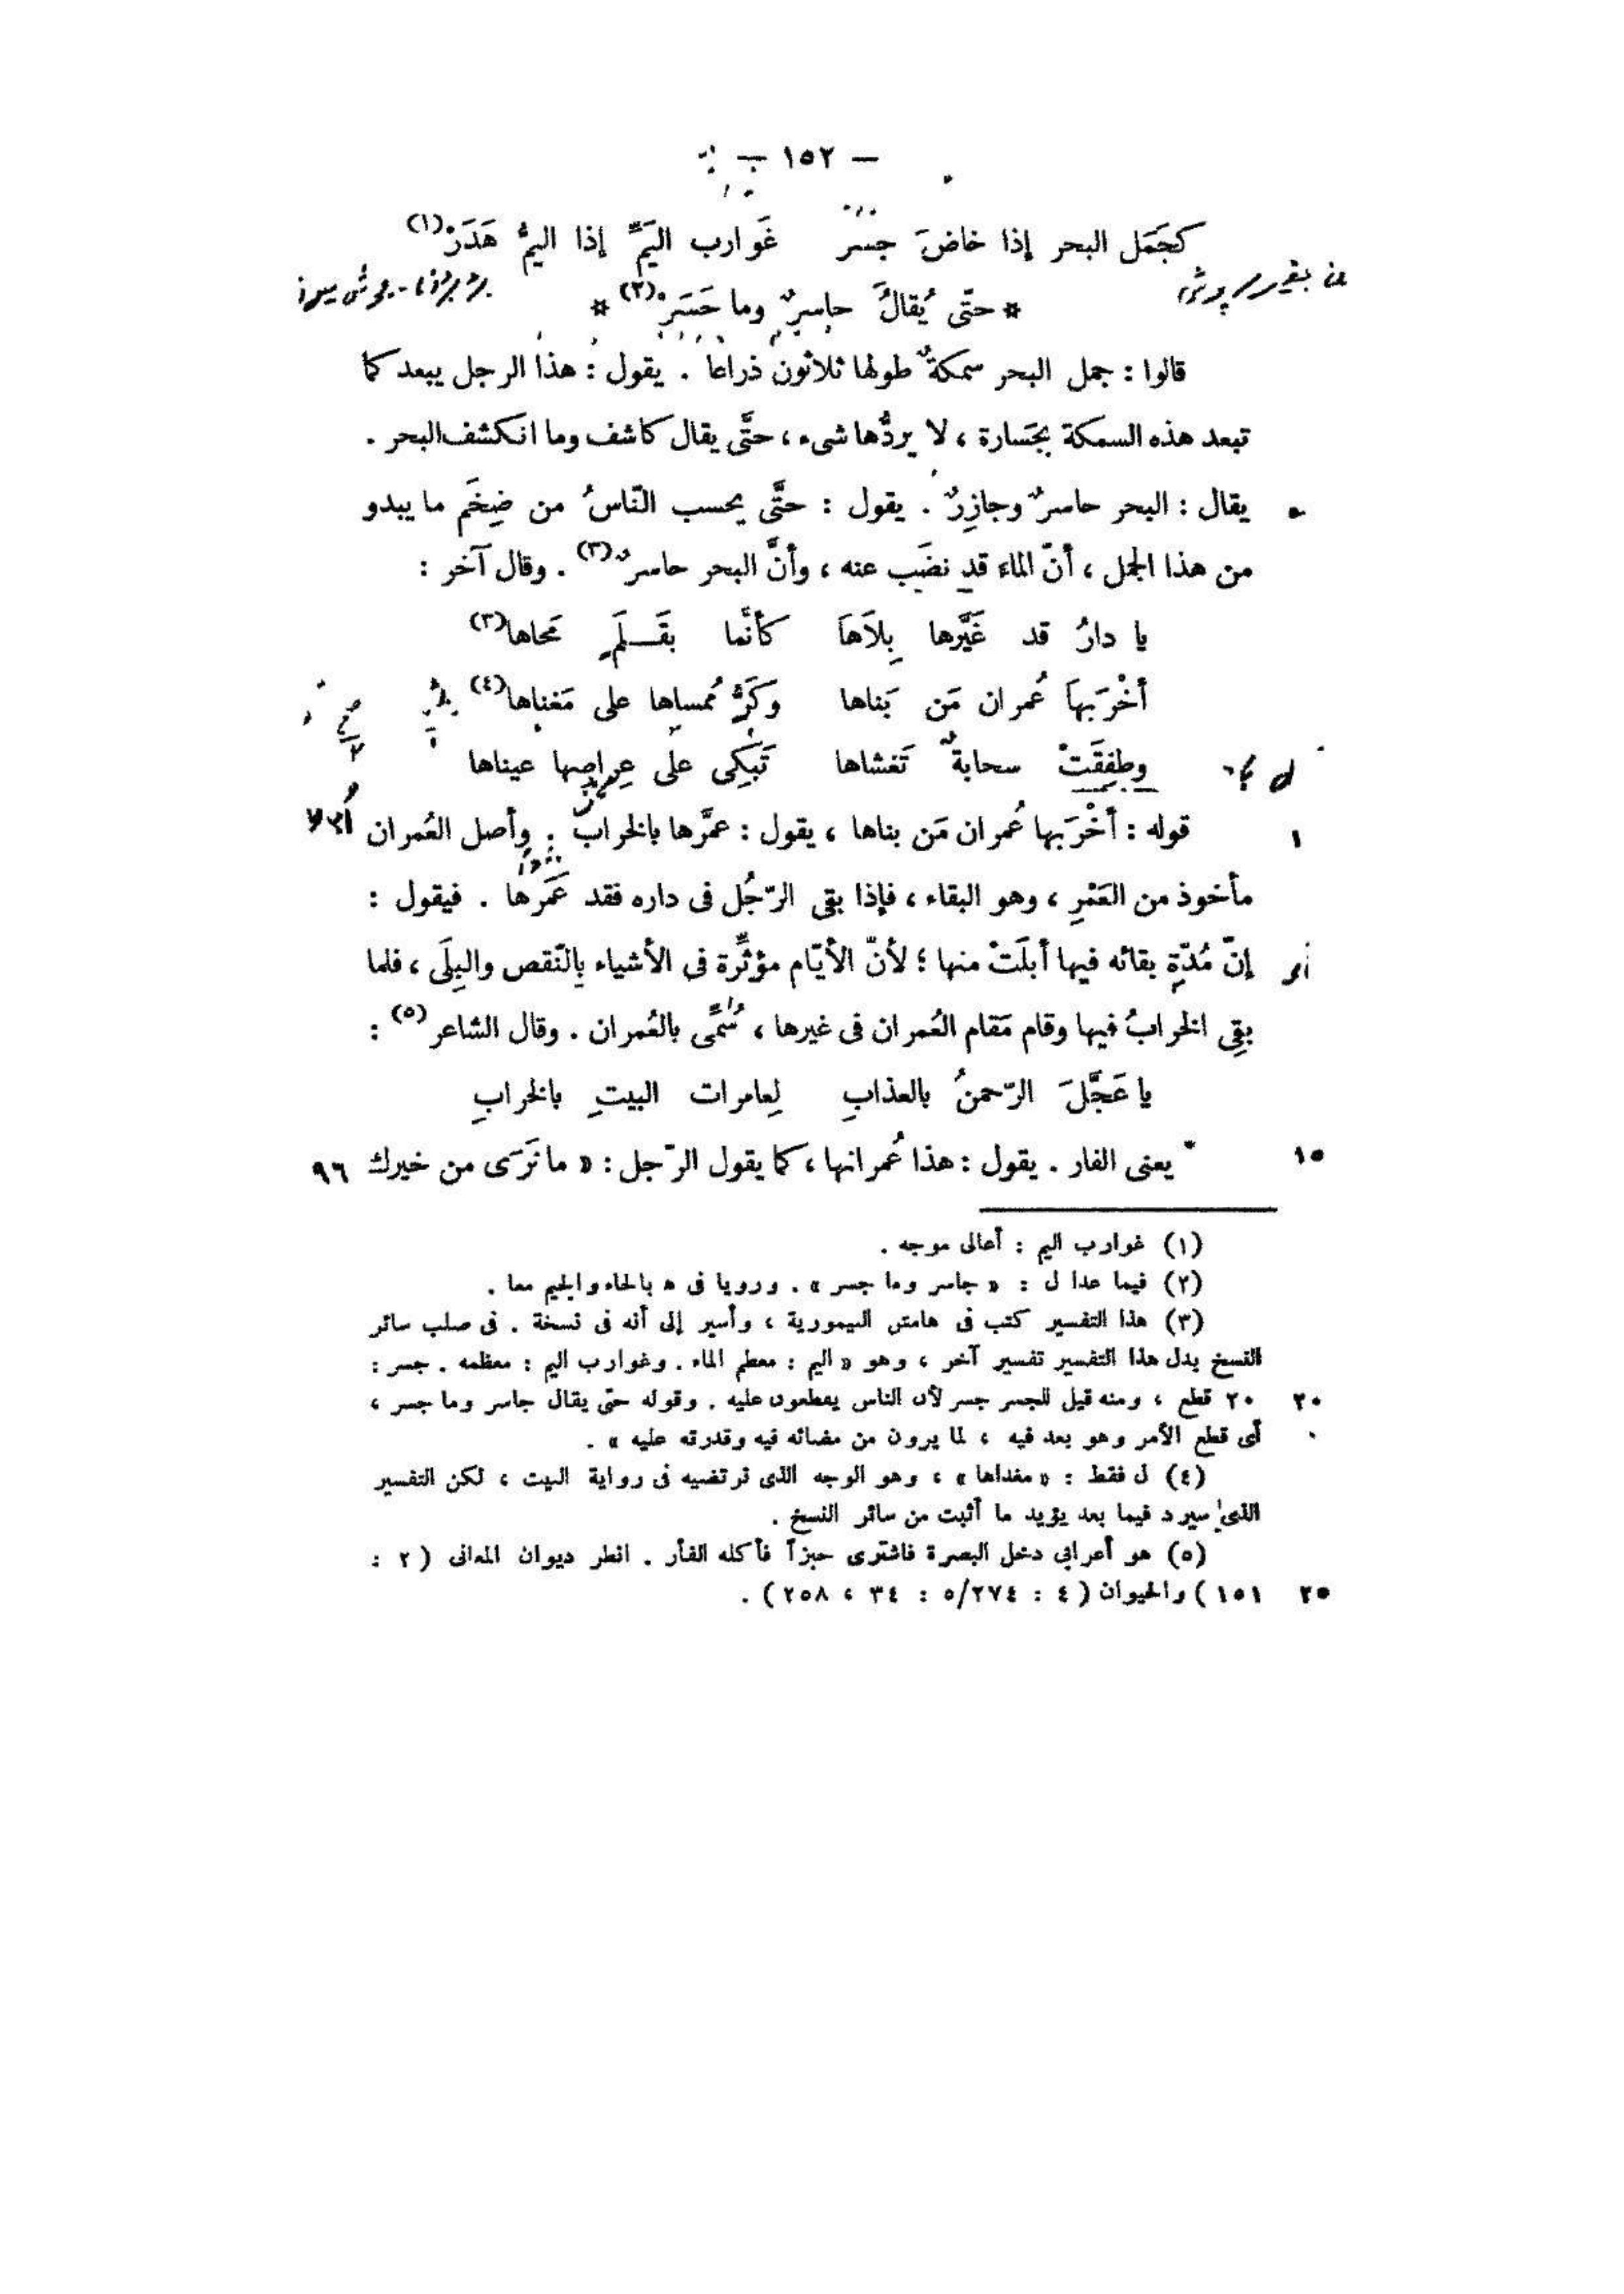 — ١٥٢ —
كجَمَل البحر إذا خاضَ جسر غَوارب اليَمِّ إذا اليمُّ هَدَرْ(١)
* حتّى يُقالَ حاسِرٌ وما حَسَرْ(٢) *
قالوا : جمل البحر سمكةٌ طولها ثلاثون ذراعاً . يقول : هذا الرجل يبعد كما
تبعد هذه السمكة بجَسارة ، لا يردُّها شىء ، حتَّى يقال كاشف وما انكشف البحر .
٥ يقال : البحر حاسرٌ وجازِرٌ . يقول : حتَّى يحسب النّاسُ من ضِخَم ما يبدو
من هذا الجمل ، أنّ الماء قد نضَب عنه ، وأنَّ البحر حاسرٌ(٣) . وقال آخر :
يا دارُ قد غَيَّرها بِلاَهَا كأنَّما بقَـلَمٍ مَحاها(٣)
أخْرَبهاَ عُمران مَن بَناها وكَرُّ مُمساها على مَغناها(٤)
وطفِقَتْ سحابةٌ تَغشاها تَبْكِى على عِراصِها عيناها
١ قوله : أخْرَبها عُمران مَن بناها ، يقول : عمَّرها بالخراب . وأصل العُمران
مأخوذ من العَمْرِ ، وهو البقاء ، فإذا بقى الرّجُل فى داره فقد عَمَرَها . فيقول :
إنّ مُدّةِ بقائه فيها أبلَتْ منها ؛ لأنّ الأيّام مؤثِّرة فى الأشياء بالنّقص والبِلَى ، فلما
بقِى الخرابُ فيها وقام مَقام العُمران فى غيرها ، سُمِّى بالعُمران . وقال الشاعر(٥) :
يا عَجَّلَ الرّحمنُ بالعذابِ لِعامرات البيتِ بالخرابِ
١٥ يعنى الفار . يقول : هذا عُمرانها ، كما يقول الرّجل : « ما نَرَى من خيرك ٩٦
(١) غوارب اليم : أعالى موجه .
(٢) فيما عدا ل : « جاسر وما جسر » . ورويا فى ه بالحاء والجيم معا .
(٣) هذا التفسير كتب فى هامش التيمورية ، وأسير إلى أنه فى نسخة . فى صلب سائر
النسخ بدل هذا التفسير تفسير آخر ، وهو « اليم : معطم الماء . وغوارب اليم : معظمه . جسر :
٢٠ ٢٠ قطع ، ومنه قيل للجسر جسر لأن الناس يقطعون عليه . وقوله حتى يقال جاسر وما جسر ،
أى قطع الأمر وهو بعد فيه ، لما يرون من مضائه فيه وقدرته عليه » .
(٤) ل فقط : « مغداها » ، وهو الوجه الذى نرتضيه فى رواية البيت ، لكن التفسير
الذى سيرد فيما بعد يؤيد ما أثبت من سائر النسخ .
(٥) هو أعرابي دخل البصرة فاشترى خبزاً فأكله الفأر . انظر ديوان المعانى ( ٢ :
٢٥ ١٥١ ) والحيوان ( ٤ : ٢٧٤/ ٥ : ٣٤ ، ٢٥٨ ) .